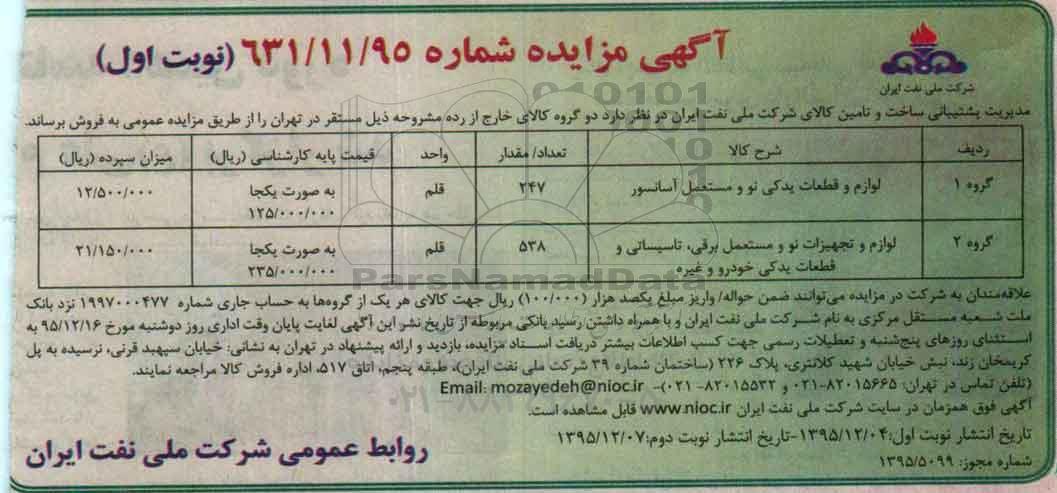 آگهی مزایده شماره ۶۳۱/۱۱/۹۵ (نوبت اول)
شرکت ملی نفت ایران
مدیریت پشتیبانی ساخت و تامین کالای شرکت ملی نفت ایران در نظر دارد دو گروه کالای خارج از رده مشروحه ذیل مستقر در تهران را از طریق مزایده عمومی به فروش برساند.
ردیف شرح کالا تعداد/ مقدار واحد قیمت پایه کارشناسی (ریال) میزان سپرده (ریال)
گروه ۱ لوازم و قطعات یدکی نو و مستعمل آسانسور ۲۴۷ قلم به صورت یکجا ۱۲/۵۰۰/۰۰۰
۱۲۵/۰۰۰/۰۰۰
گروه ۲ لوازم و تجهیزات نو و مستعمل برقی، تاسیساتی و ۵۳۸ قلم به صورت یکجا ۲۱/۱۵۰/۰۰۰
قطعات یدکی خودرو و غیره ۲۳۵/۰۰۰/۰۰۰
ParsNamadData
علاقه‌مندان به شرکت در مزایده می‌توانند ضمن حواله/ واریز مبلغ یکصد هزار (۱۰۰/۰۰۰) ریال جهت کالای هر یک از گروه‌ها به حساب جاری شماره ۱۹۹۷۰۰۰۴۷۷ نزد بانک
ملت شعبه مستقل مرکزی به نام شرکت ملی نفت ایران و با همراه داشتن رسید بانکی مربوطه از تاریخ نشر این آگهی لغایت پایان وقت اداری روز دوشنبه مورخ ۹۵/۱۲/۱۶ به
استثنای روزهای پنج‌شنبه و تعطیلات رسمی جهت کسب اطلاعات بیشتر دریافت اسناد مزایده، بازدید و ارائه پیشنهاد در تهران به نشانی: خیابان سپهبد قرنی، نرسیده به پل
کریمخان زند، نبش خیابان شهید کلانتری، پلاک ۲۲۶ (ساختمان شماره ۳۹ شرکت ملی نفت ایران)، طبقه پنجم، اتاق ۵۱۷، اداره فروش کالا مراجعه نمایند.
(تلفن تماس در تهران: ۸۲۰۱۵۶۶۵-۰۲۱ و ۸۲۰۱۵۵۳۲-۰۲۱)- Email: mozayedeh@nioc.ir
آگهی فوق همزمان در سایت شرکت ملی نفت ایران www.nioc.ir قابل مشاهده است.
تاریخ انتشار نوبت اول:۱۳۹۵/۱۲/۰۴-تاریخ انتشار نوبت دوم:۱۳۹۵/۱۲/۰۷
شماره مجوز: ۱۳۹۵/۵۰۹۹
روابط عمومی شرکت ملی نفت ایران